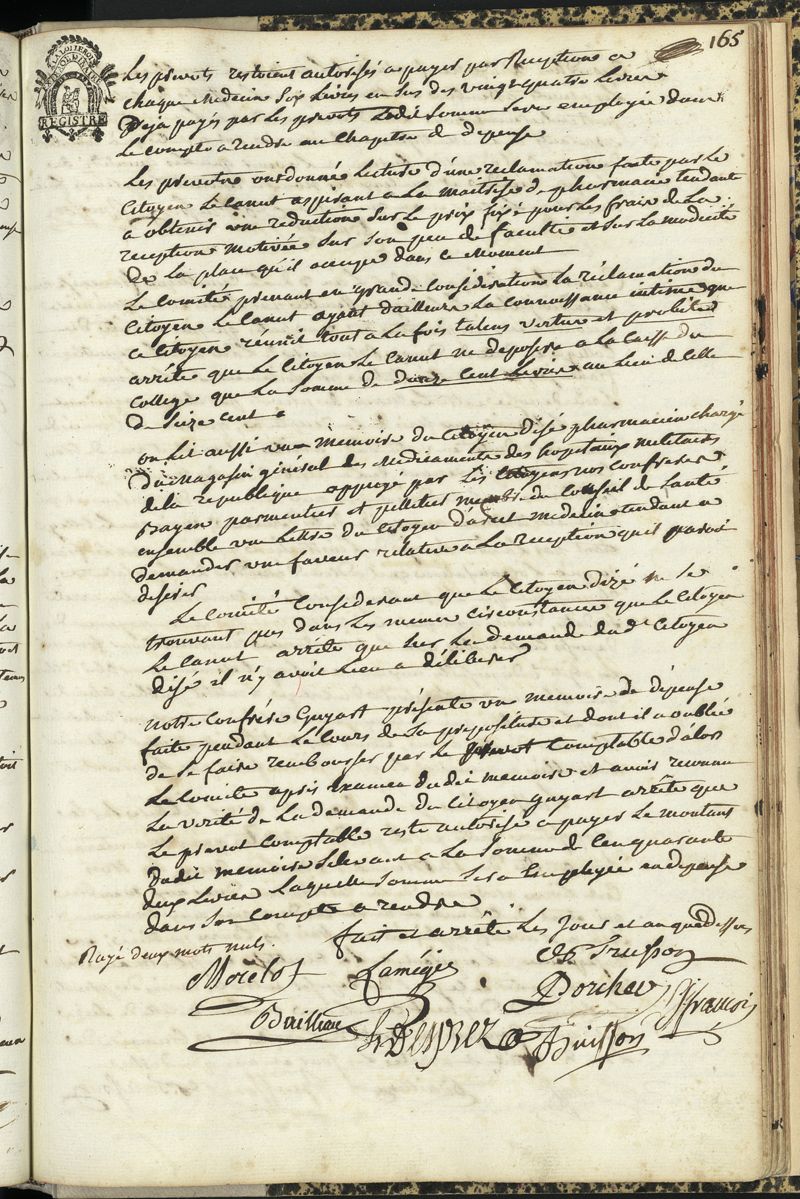 165
LA LOI LE ROI
REGISTRE
Les prevots restoient autorisés a payer par Reception a
chaque Medecin Six Livres en sus des vingt quatre Livres
Deja payés par les prevots Ladite Somme Sera employée dans
Le compte a rendre au Chapitre de depense
Les prevots ont donné Lecture d'une reclamation faite par Le
Citoyen Le Canut aspirant a La maitrise de pharmacie tendante
a obtenir une reduction Sur Le prix fixé pour Les frais de La
reception motivée Sur Son peu de faculté et Sur La modicité
De La place qu'il occupe dans ce Moment
Le Comité prenant en grande Consideration La réclamation du
Citoyen Le Canut ayant d'ailleurs La Connoissance intime que
ce Citoyen réunit tout a La fois talens vertus et probité
arrête que Le Citoyen Le Canut ne deposera a La Caisse du
College que La Somme de Douze Cent Livres au Lieu de Celle
De Seize Cent
on Lit aussi un Memoire du Citoyen Disé pharmacien chargé
Du Magasin général des Medicamens des hopitaux militaires
de la republique appuyé par Les Citoyens nos Confreres
Bayen parmentier et pelletier membres du Conseil de Santé
ensemble une Lettre du Citoyen Darcet medecin tendant a
demander une faveur relative a La reception qu'il paroit
desirer
Le Comité Considerant que Le Citoyen Dizé ne se
trouvant pas dans Les memes circonstances que Le Citoyen
Le Canut arrête que Sur La demande dud. Citoyen
disé il n'y avoit Lieu a déliberer
notre Confrére Guyart présente un memoire de dépense
faite pendant Le Cours de Sa prepositure et dont il a oublié
de Se faire rembourser par Le prevot Comptable d'alors
Le Comité après Examen dudit memoire et avoir reconnu
La verité de La demande du Citoyen guyart arrête que
Le prevot Comptable reste autorisé a payer Le montant
Dudit memoire Selevant a La Somme de Cinquante
deux Livres Laquelle Somme Sera Employée en depense
dans Son Compte a rendre
fait et arrêté Les Jour et an que Dessus
Rayé deux mots nuls.
Morelot
Trusson
Dorichau
François
Bailleau
Desprez
Buisson